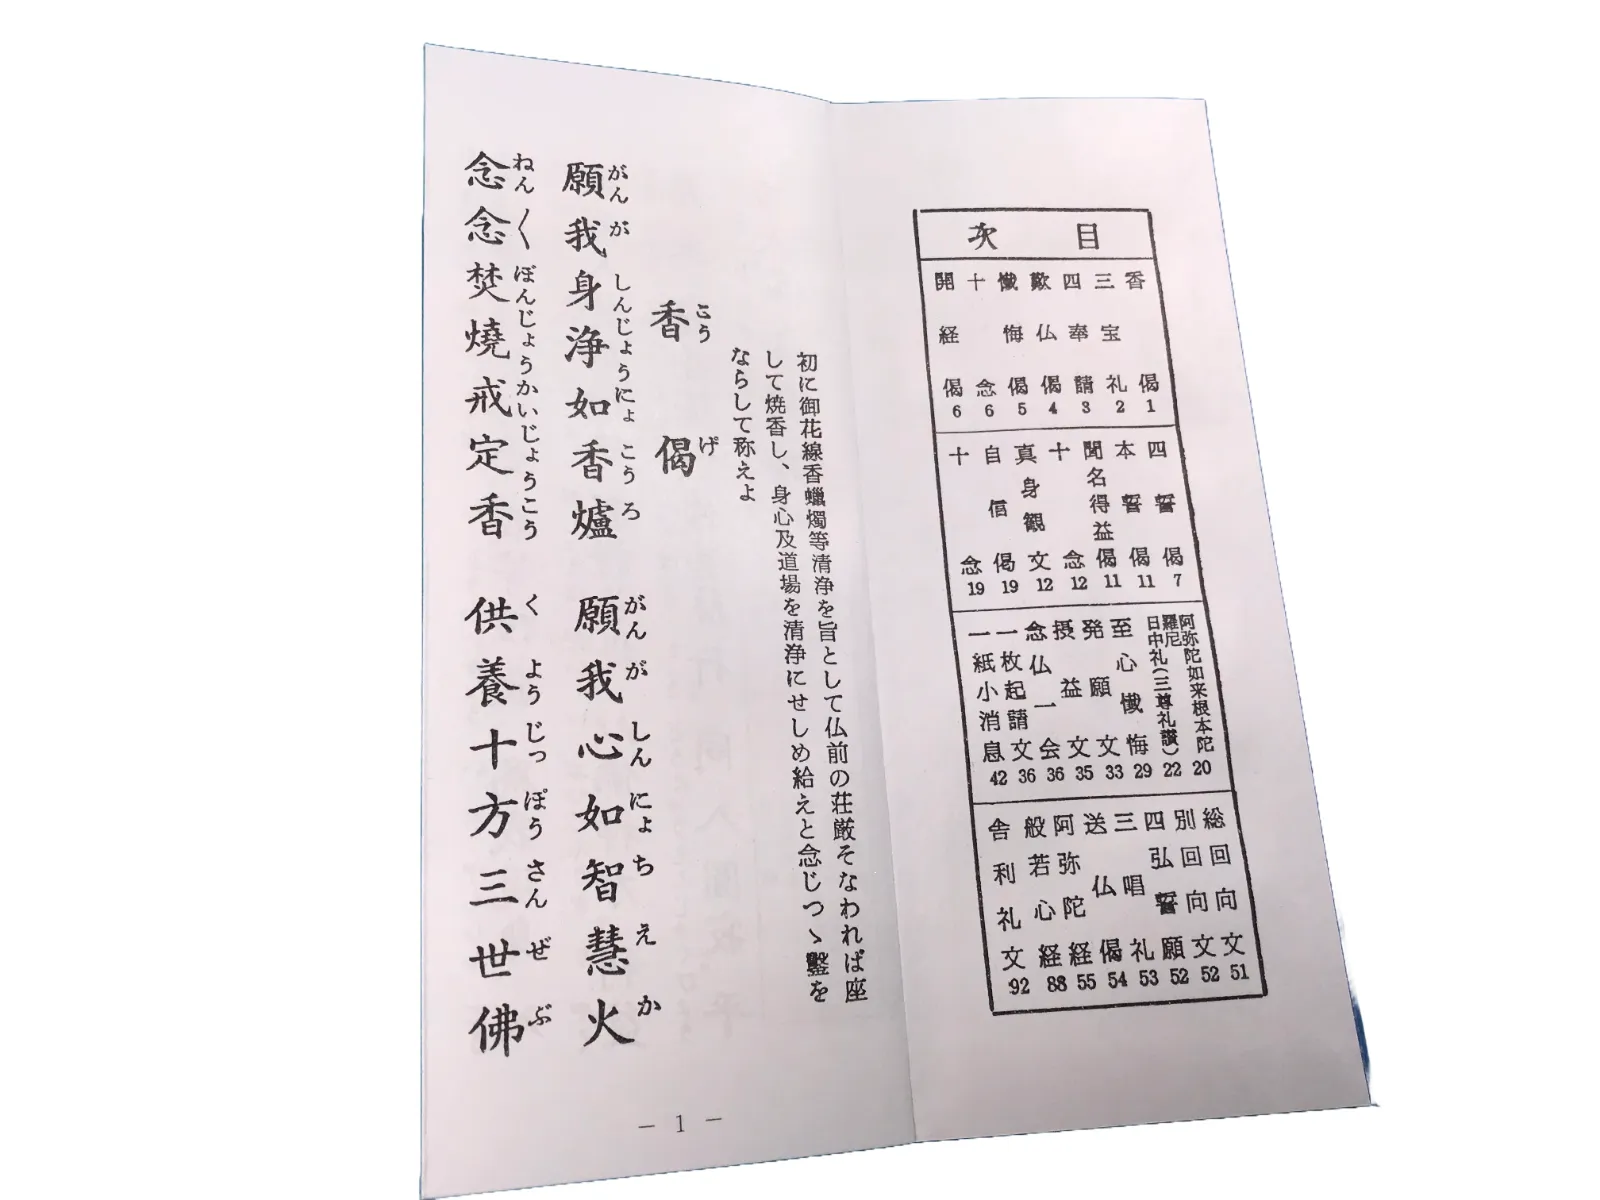 目次
香偈 1
三宝礼 2
四奉請 3
歎仏偈 4
懺悔偈 5
十念 6
開経偈 6
四誓偈 7
本誓偈 11
聞名得益偈 11
十念 12
真身観文 12
自信偈 19
十念 19
阿弥陀如来根本陀羅尼 20
日中礼(三尊礼讃) 22
至心懺悔 29
発願文 33
摂益文 35
念仏一会 36
一枚起請文 36
一紙小消息 42
総回向文 51
別回向文 52
四弘誓願 52
三唱礼 53
送仏偈 54
阿弥陀経 55
般若心経 88
舎利礼文 92
初に御花線香蠟燭等清浄を旨として仏前の荘厳そなわれば座
して焼香し、身心及道場を清浄にせしめ給えと念じつゝ鑿を
ならして称えよ
香偈
こうげ
願我身浄如香爐 願我心如智慧火
がんがしんじょうにょこうろ がんがしんにょちえか
念念焚燒戒定香 供養十方三世佛
ねん〱ぼんじょうかいじょうこう くようじっぽうさんぜぶ
― 1 ―